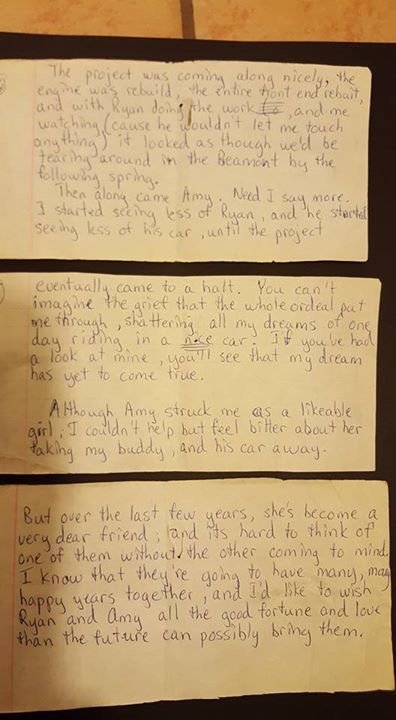 The project was coming along nicely, the
engine was rebuild, the entire front end rebuit,
and with Ryan doing the work, and me
watching, (cause he wouldn't let me touch
anything) it looked as though we'd be
tearing around in the Beamont by the
following spring.
Then along came Amy. Need I say more.
I started seeing less of Ryan, and he started
seeing less of his car, until the project
eventually came to a halt. You can't
imagine the grief that the whole ordeal put
me through, shattering all my dreams of one
day riding in a nice car. If you've had
a look at mine, you'll see that my dream
has yet to come true.
Although Amy struck me as a likeable
girl, I couldn't help but feel bitter about her
taking my buddy, and his car away.
But over the last few years, she's become a
very dear friend; and its hard to think of
one of them without the other coming to mind.
I know that they're going to have many, many
happy years together, and I'd like to wish
Ryan and Amy all the good fortune and love
than the future can possibly bring them.